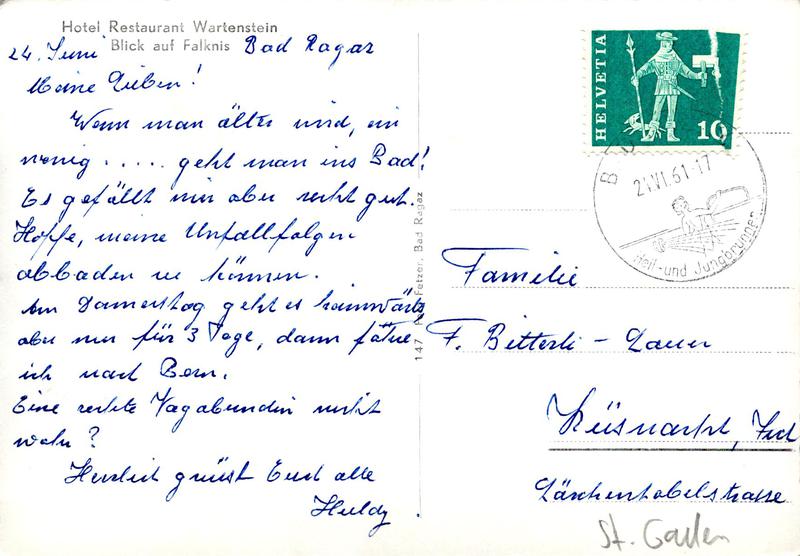 Hotel Restaurant Wartenstein
Blick auf Falknis
24. Juni Bad Ragaz
Meine Lieben!
Wenn man älter wird, ein
wenig ..... geht man ins Bad!
Es gefällt mir aber recht gut.
Hoffe, meine Unfallfolgen
abbaden zu können.
Am Donnerstag geht es heimwärts,
aber nur für 3 Tage, dann fahre
ich nach Bern.
Eine rechte Vagabundin nicht
wahr?
Herzlich grüsst Euch alle
Huldy
147 Fetzer, Bad Ragaz
HELVETIA
10
VI.61-17
Heil- und Jungbrunnen
Familie
F. Bitterli - Dauer
Küsnacht, Zch
Lärchentobelstrasse
St. Gallen